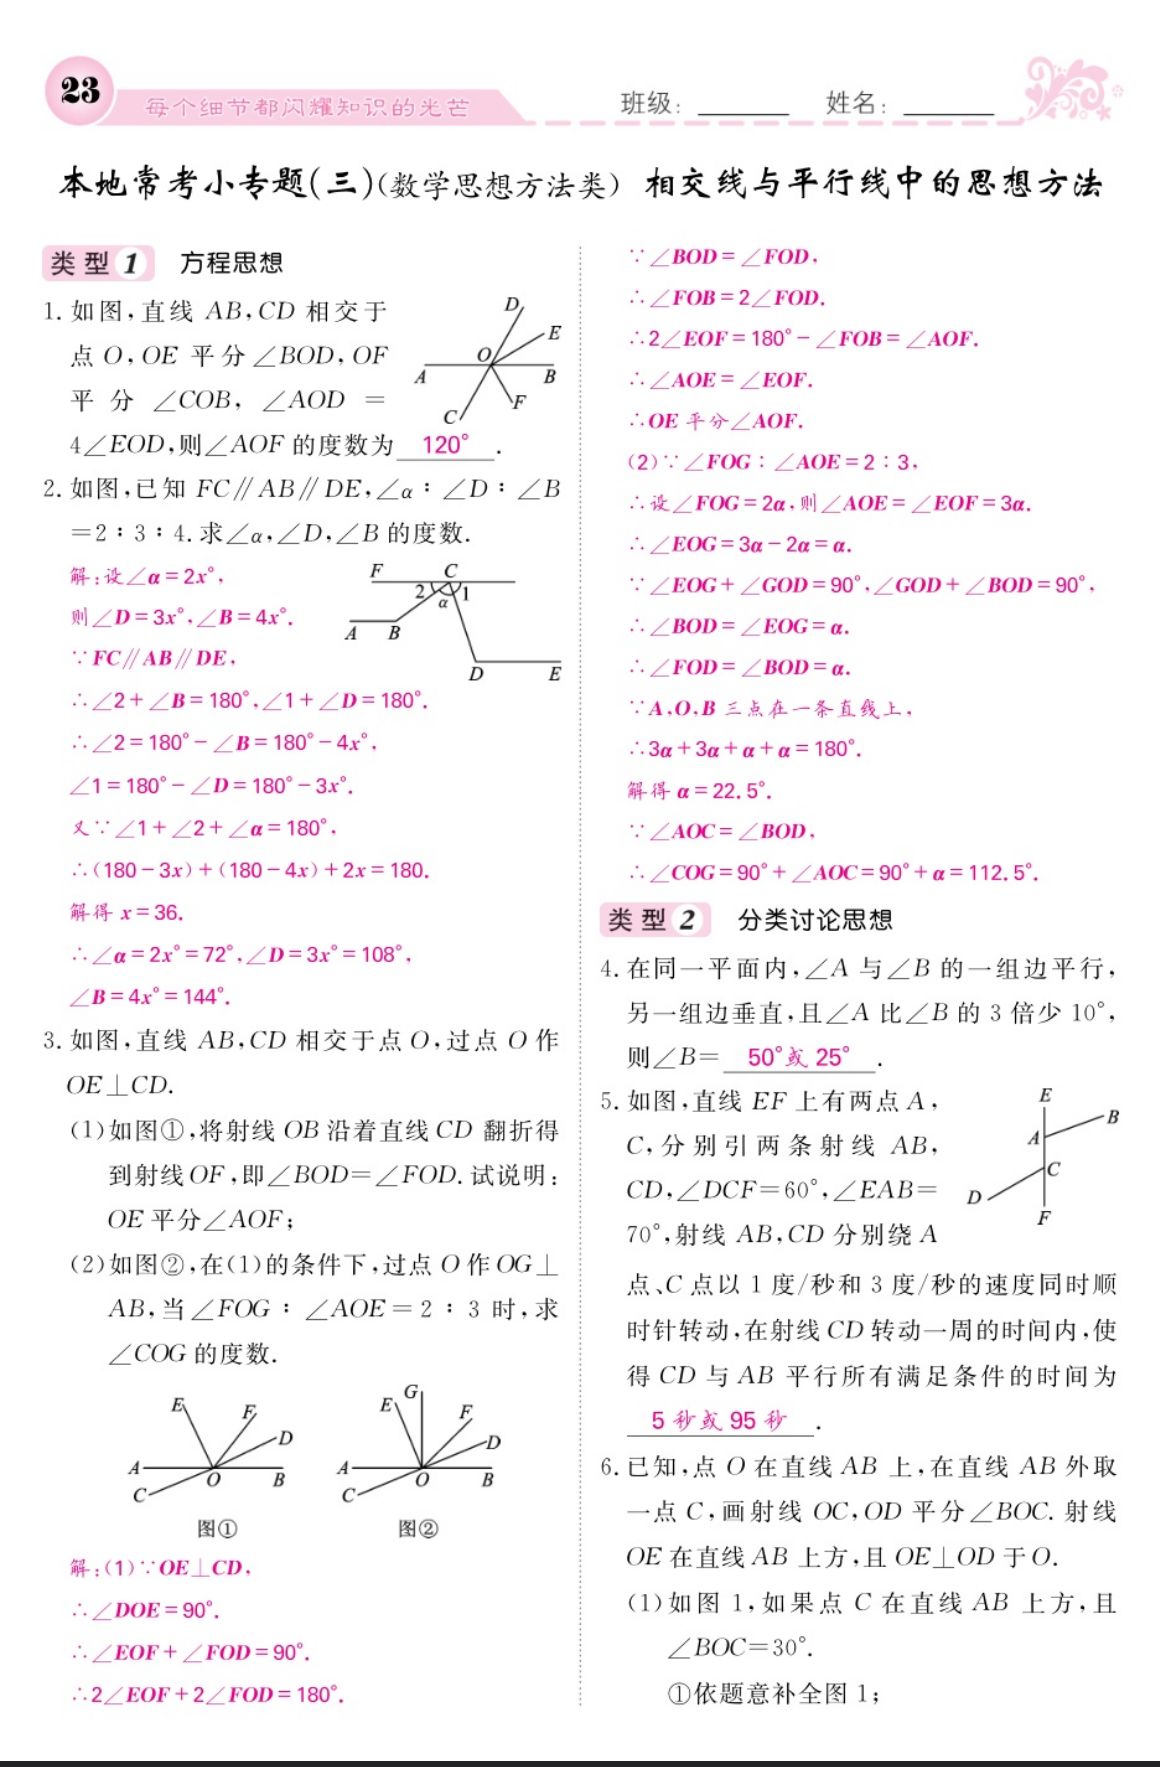 23
每个细节都闪耀知识的光芒
班级: 姓名:
本地常考小专题(三)(数学思想方法类) 相交线与平行线中的思想方法
类型1 方程思想
1. 如图,直线 AB,CD 相交于
点 O,OE 平分∠BOD,OF
平分∠COB,∠AOD =
4∠EOD,则∠AOF 的度数为 120° .
D
E
O
A
B
F
C
2. 如图,已知 FC∥AB∥DE,∠α∶∠D∶∠B
=2∶3∶4. 求∠α,∠D,∠B 的度数.
解:设∠α=2x°,
则∠D=3x°,∠B=4x°.
∵FC∥AB∥DE,
∴∠2+∠B=180°,∠1+∠D=180°.
∴∠2=180°-∠B=180°-4x°,
∠1=180°-∠D=180°-3x°.
又∵∠1+∠2+∠α=180°,
∴(180-3x)+(180-4x)+2x=180.
解得 x=36.
∴∠α=2x°=72°,∠D=3x°=108°,
∠B=4x°=144°.
F C
2 α 1
A B
D E
3. 如图,直线 AB,CD 相交于点 O,过点 O 作
OE⊥CD.
(1)如图①,将射线 OB 沿着直线 CD 翻折得
到射线 OF,即∠BOD=∠FOD. 试说明:
OE 平分∠AOF;
(2)如图②,在(1)的条件下,过点 O 作 OG⊥
AB,当∠FOG∶∠AOE=2∶3 时,求
∠COG 的度数.
E F D
A O B
C
图①
E G F D
A O B
C
图②
解:(1)∵OE⊥CD,
∴∠DOE=90°.
∴∠EOF+∠FOD=90°.
∴2∠EOF+2∠FOD=180°.
∵∠BOD=∠FOD,
∴∠FOB=2∠FOD.
∴2∠EOF=180°-∠FOB=∠AOF.
∴∠AOE=∠EOF.
∴OE 平分∠AOF.
(2)∵∠FOG∶∠AOE=2∶3,
∴设∠FOG=2α,则∠AOE=∠EOF=3α.
∴∠EOG=3α-2α=α.
∵∠EOG+∠GOD=90°,∠GOD+∠BOD=90°,
∴∠BOD=∠EOG=α.
∴∠FOD=∠BOD=α.
∵A,O,B 三点在一条直线上,
∴3α+3α+α+α=180°.
解得 α=22.5°.
∵∠AOC=∠BOD,
∴∠COG=90°+∠AOC=90°+α=112.5°.
类型2 分类讨论思想
4. 在同一平面内,∠A 与∠B 的一组边平行,
另一组边垂直,且∠A 比∠B 的 3 倍少 10°,
则∠B= 50°或 25° .
5. 如图,直线 EF 上有两点 A,
C,分别引两条射线 AB,
CD,∠DCF=60°,∠EAB=
70°,射线 AB,CD 分别绕 A
点、C 点以 1 度/秒和 3 度/秒的速度同时顺
时针转动,在射线 CD 转动一周的时间内,使
得 CD 与 AB 平行所有满足条件的时间为
5 秒或 95 秒 .
E
B
A
C
D
F
6. 已知,点 O 在直线 AB 上,在直线 AB 外取
一点 C,画射线 OC,OD 平分∠BOC. 射线
OE 在直线 AB 上方,且 OE⊥OD 于 O.
(1)如图 1,如果点 C 在直线 AB 上方,且
∠BOC=30°.
①依题意补全图 1;